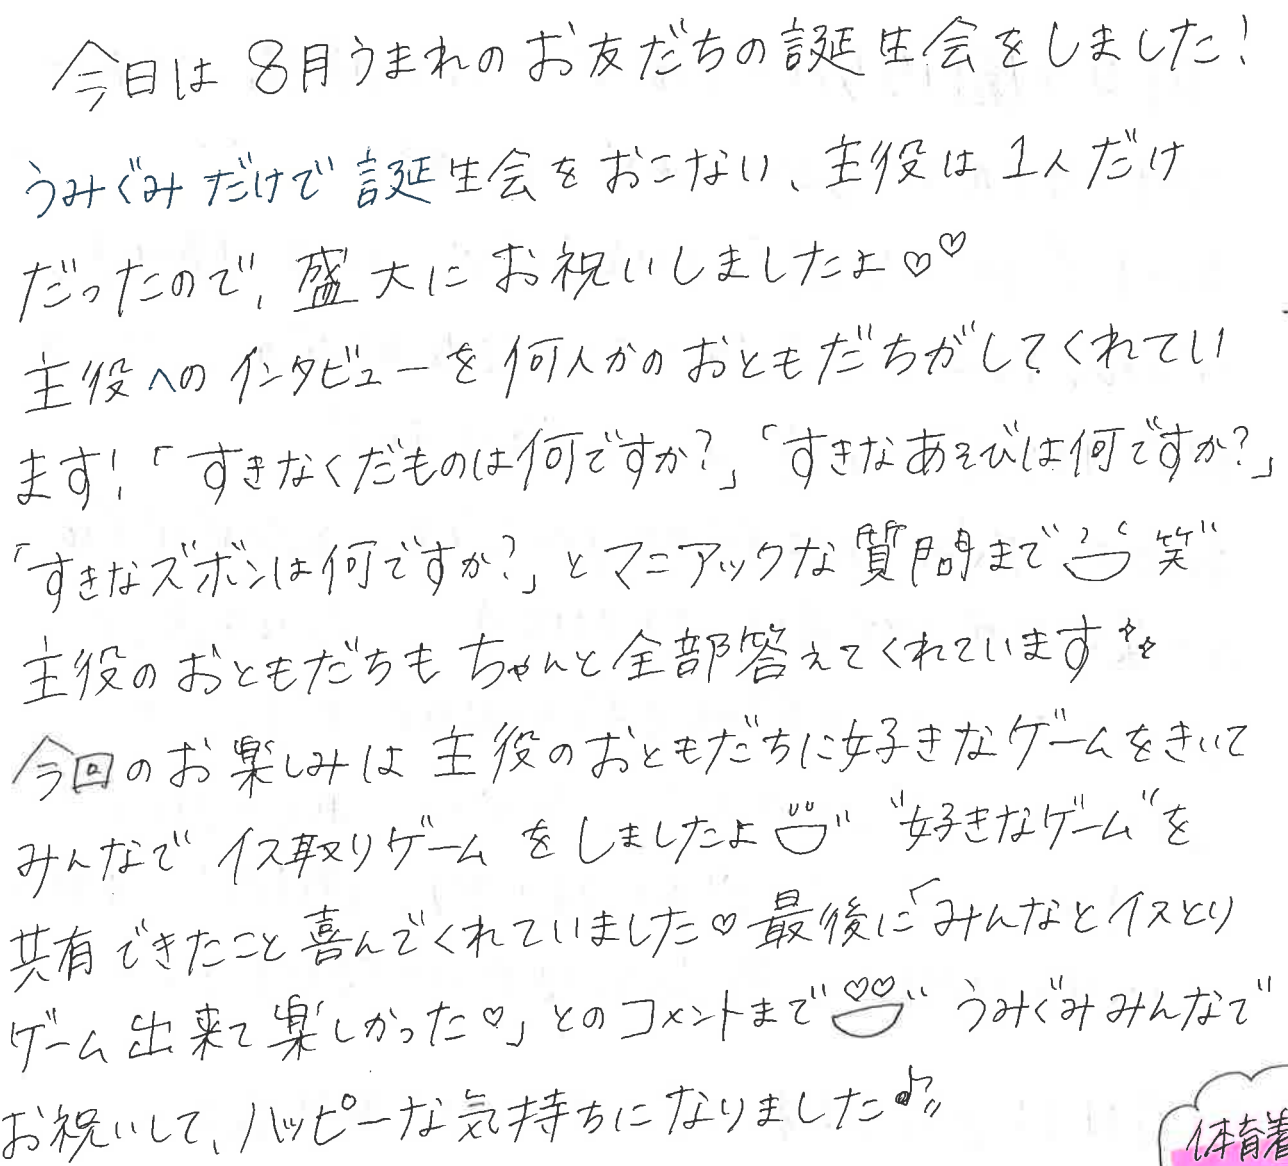 今日は8月うまれのお友だちの誕生会をしました!
うみぐみだけで誕生会をおこない、主役は1人だけ
だったので、盛大にお祝いしましたよ♡♡
主役へのインタビューを何人かのおともだちがしてくれてい
ます!「すきなくだものは何ですか?」「すきなあそびは何ですか?」
「すきなズボンは何ですか?」とマニアックな質問まで 笑"
主役のおともだちもちゃんと全部答えてくれています
今回のお楽しみは主役のおともだちに好きなゲームをきいて
みんなでイス取りゲームをしましたよ "好きなゲーム"を
共有できたこと喜んでくれていました♡最後に「みんなとイスとり
ゲーム出来て楽しかった♡」とのコメントまで うみぐみみんなで
お祝いして、ハッピーな気持ちになりました♪
体育着